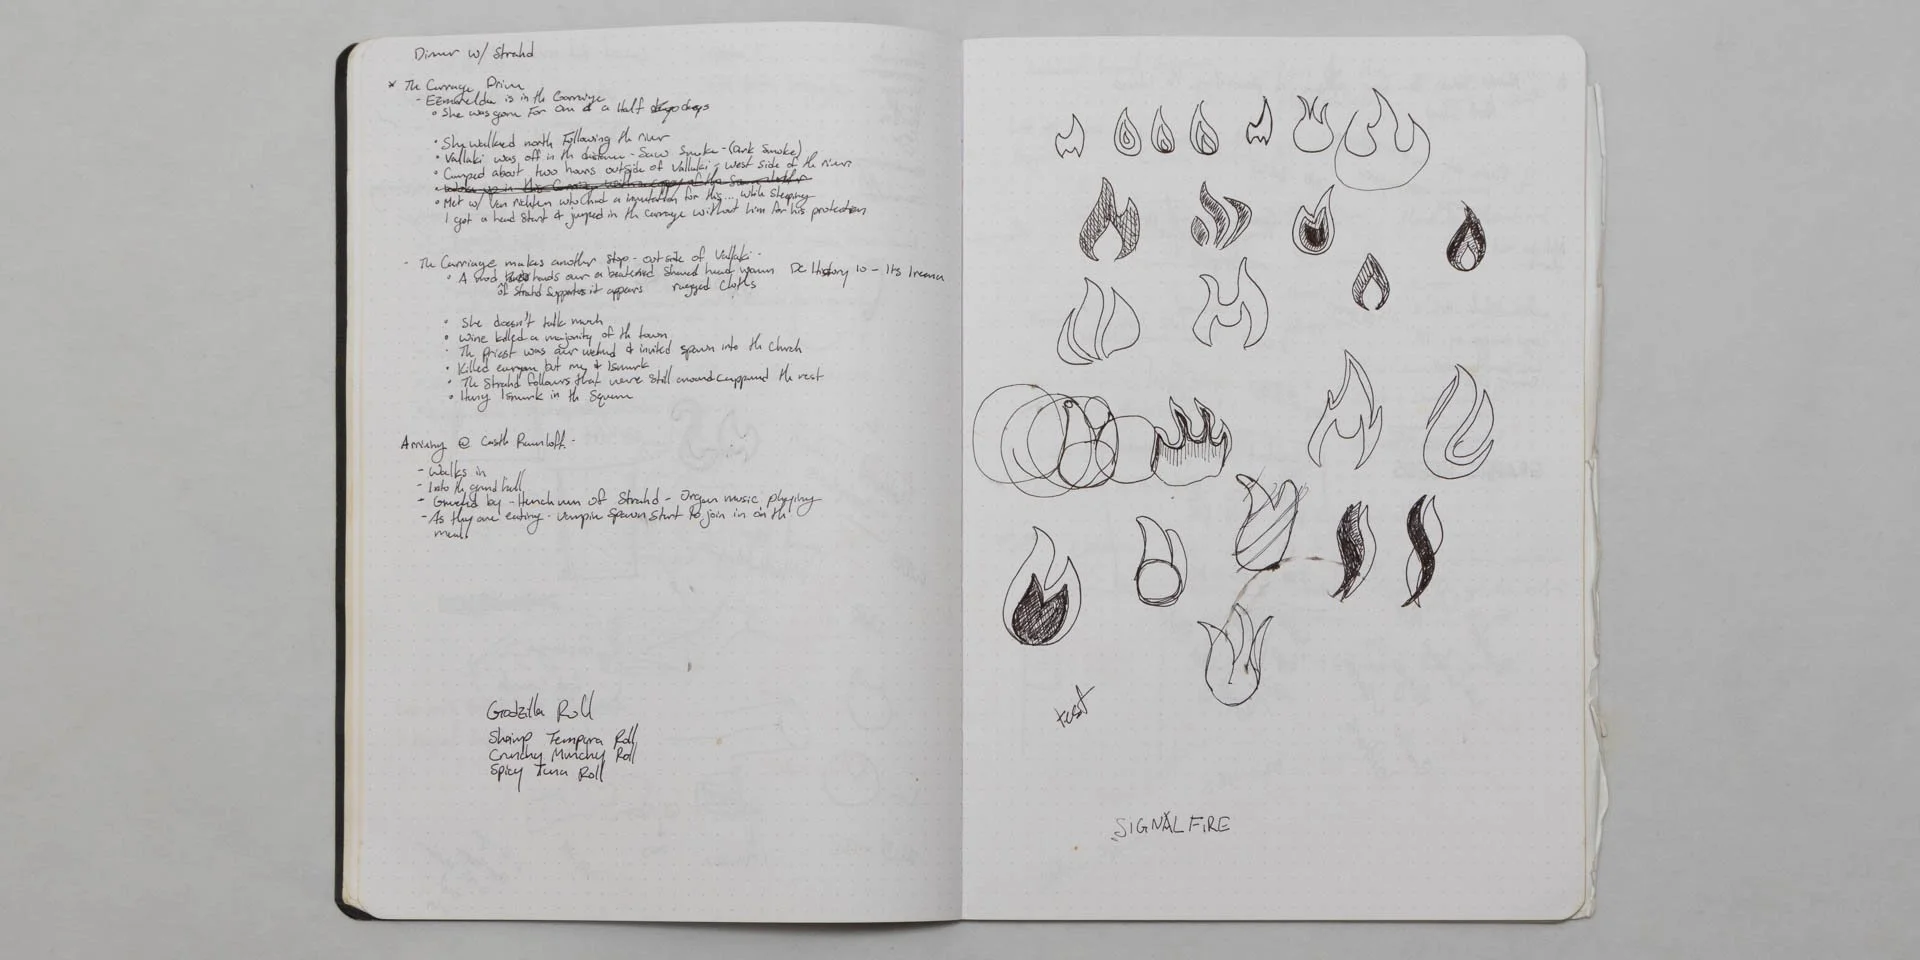 Dinner w/ Strahd
* The Carriage Drive
- Ezmerelda is in the Carriage
• She was gone For One & a Half days
• She walked north Following the river
• Vallaki was off in the distance - Saw Smoke - (Dark Smoke)
• Camped about two hours outside of Vallaki - west side of the river
• Met w/ Van Richten who had a invitation for this... while sleeping
I got a head Start & jumped in the carriage without him for his protection
- The Carriage makes another Stop - outside of Vallaki -
• A hands over a Shaved head woman DC History 10 - Its Ireena
of Strahd Supporters it appears rugged cloths
• She doesn't talk much
• Wine killed a majority of the town
• The Priest was & invited spawn into the church
• Killed everyone but me & Ismark
• The Strahd followers that were still around the rest
• Hung Ismark in the Square
Arriving @ Castle Ravenloft -
- Walks in
- Into the grand hall
- Greeted by - Henchmen of Strahd - Organ music playing
- As they are eating - vampire Spawn Start to join in on the
meal.
Godzilla Roll
Shrimp Tempura Roll
Crunchy Munchy Roll
Spicy Tuna Roll
test
SIGNAL FIRE